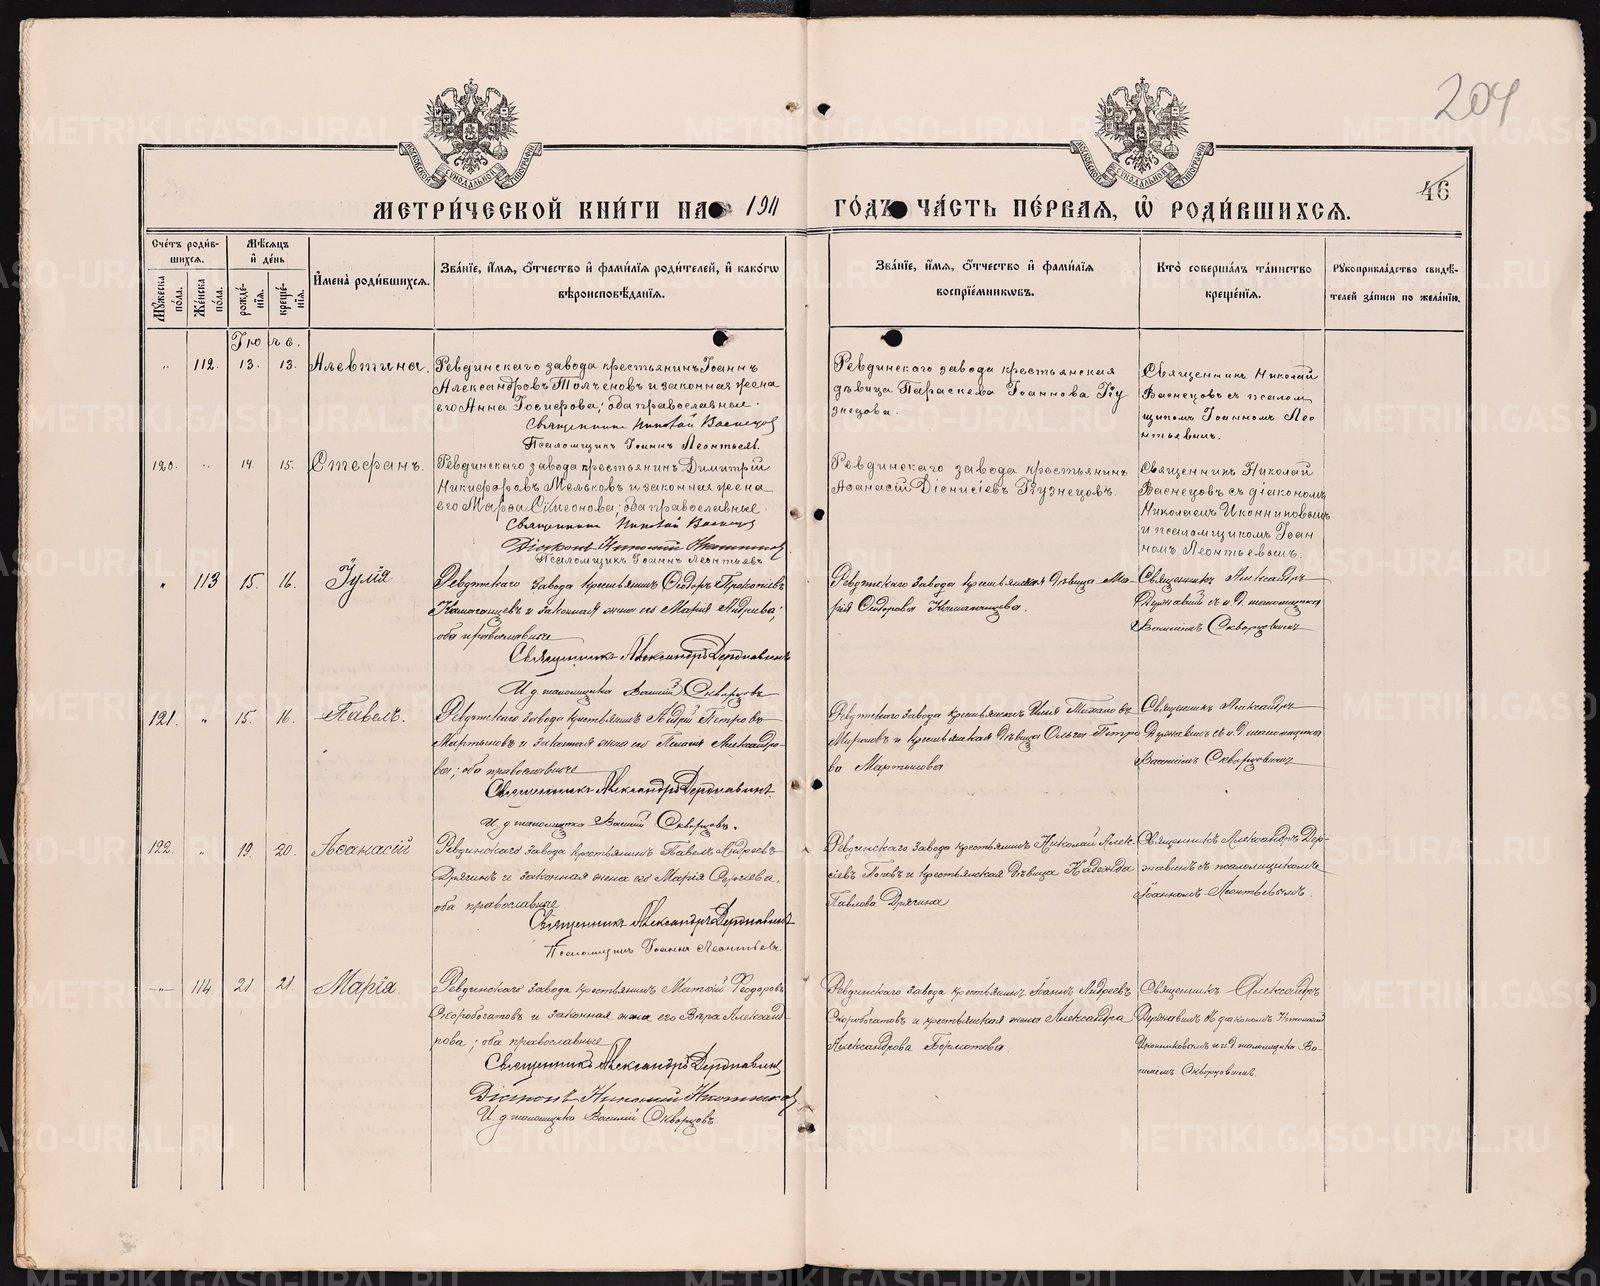 204
46
МОСКОВСКОЙ СУНОДАЛЬНОЙ ТИПОГРАФІИ
МОСКОВСКОЙ СУНОДАЛЬНОЙ ТИПОГРАФІИ
МЕТРИ́ЧЕСКОЙ КНИ́ГИ НА 1911 ГО́ДЪ ЧА́СТЬ ПЕ́РВАѦ, Ѽ РОДИ́ВШИХСѦ.
Сче́тъ роди́в-
шихсѧ.
Мꙋжеска по́ла.
Же́нска по́ла.
Мѣ́сѧцъ и҆ де́нь
рожде́-
нїѧ.
креще́-
нїѧ.
И҆мена̀ роди́вшихсѧ.
Зва́нїе, и҆́мѧ, ѻ҆́тчество и҆ фами́лїѧ роди́телей, и҆ како́гѡ
вѣроисповѣ́данїѧ.
Зва́нїе, и҆́мѧ, ѻ҆́тчество и҆ фами́лїѧ
воспрїе́мникѡвъ.
Кто̀ соверша́лъ та́инство
креще́нїѧ.
Рꙋкоприкла́дство свидѣ́-
телей за́писи по жела́нїю.
Іюль.
" 112. 13. 13. Алевтина.
Ревдинскаго завода крестьянинъ Іоаннъ
Александровъ Толченовъ и законная жена
его Анна Іосифова; оба православные.
Священникъ Николай Васнецов
Псаломщикъ Іоаннъ Леонтьевъ.
Ревдинскаго завода крестьянская
дѣвица Параскева Іоаннова Ку
знецова.
Священникъ Николай
Васнецовъ съ псалом
щикомъ Іоанномъ Лео
нтьевымъ.
120. " 14. 15. Стефанъ.
Ревдинскаго завода крестьянинъ Димитрій
Никифоровъ Мельковъ и законная жена
его Марѳа Симеонова; оба православные.
Священникъ Николай Васнецов
Діаконъ Николай Иконников
Псаломщикъ Іоаннъ Леонтьевъ
Ревдинскаго завода крестьянинъ
Аѳанасій Діонисіевъ Кузнецовъ.
Священникъ Николай
Васнецовъ съ діакономъ
Николаемъ Иконниковымъ
и псаломщикомъ Іоан
номъ Леонтьевымъ.
" 113 15. 16. Іулія
Ревдинскаго завода крестьянинъ Ѳедоръ Прокопіевъ
и законная жена его Марія Андреева;
оба православные
Священникъ Александръ Державинъ
И. д. псаломщика Василій Скворцовъ
Ревдинскаго завода крестьянская дѣвица Ма-
рія Ѳедорова
Священникъ Александръ
Державинъ съ и. д. псаломщика
Василіемъ Скворцовымъ
121. " 15. 16. Павелъ.
Ревдинскаго завода крестьянинъ Андрей Петровъ
Мартыновъ и законная жена его Александро-
ва; оба православные
Священникъ Александръ Державинъ.
И. д. псаломщика Василій Скворцовъ.
Ревдинскаго завода крестьянинъ Михаловъ
Мироновъ и крестьянская дѣвица Ольга Петро
ва Мартынова
Священникъ Александръ
Державинъ съ и. д. псаломщика
Василіемъ Скворцовымъ
122. " 19. 20. Аѳанасій
Ревдинскаго завода крестьянинъ Павелъ Андреевъ
Дрягинъ и законная жена его Марія Сергіева,
оба православные
Священникъ Александръ Державинъ
Псаломщикъ Іоаннъ Леонтьевъ
Ревдинскаго завода крестьянинъ Николай Алек-
сіевъ Поповъ и крестьянская дѣвица Надежда
Павлова Дрягина
Священникъ Александръ Дер-
жавинъ съ псаломщикомъ
Іоанномъ Леонтьевымъ.
" 114 21. 21. Марія.
Ревдинскаго завода крестьянинъ Матѳій Ѳеодоровъ
Скоробогатовъ и законная жена его Вѣра Александ-
рова; оба православные
Священникъ Александръ Державинъ
Діаконъ Николай Иконников
И. д. псаломщика Василій Скворцовъ.
Ревдинскаго завода крестьянинъ Іоаннъ Андреевъ
Скоробогатовъ и крестьянская жена Александра
Александрова Бормотова.
Священникъ Александръ
Державинъ съ діакономъ Николаемъ
Иконниковымъ и и. д. псаломщика Ва-
силіемъ Скворцовымъ.
METRIKI.GASO-URAL.RU